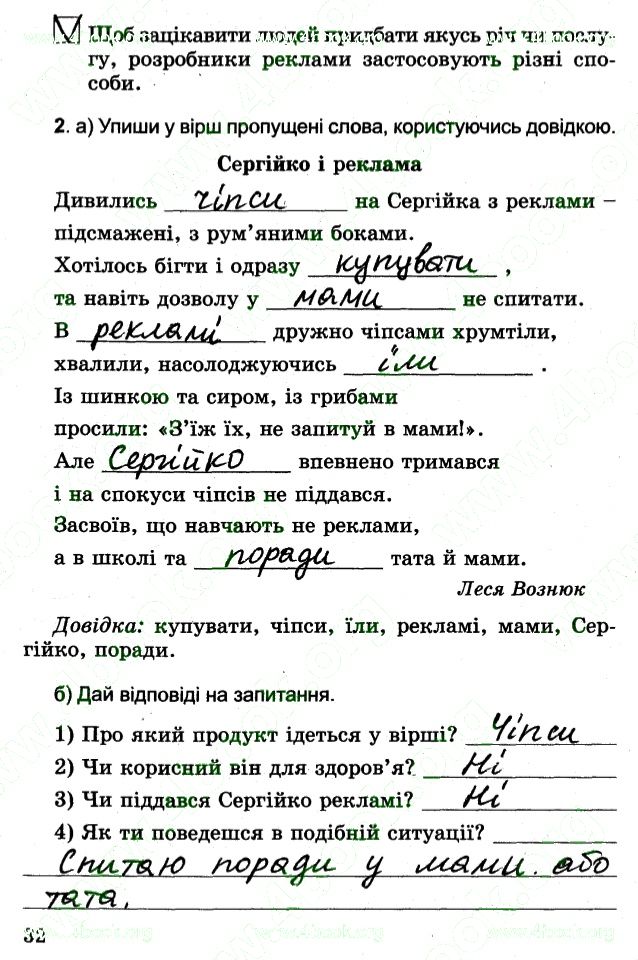 Щоб зацікавити людей придбати якусь річ чи послу-
гу, розробники реклами застосовують різні спо-
соби.
2. а) Упиши у вірш пропущені слова, користуючись довідкою.
Сергійко і реклама
Дивились чіпси на Сергійка з реклами –
підсмажені, з рум’яними боками.
Хотілось бігти і одразу купувати ,
та навіть дозволу у мами не спитати.
В рекламі дружно чіпсами хрумтіли,
хвалили, насолоджуючись їли .
Із шинкою та сиром, із грибами
просили: «З’їж їх, не запитуй в мами!».
Але Сергійко впевнено тримався
і на спокуси чіпсів не піддався.
Засвоїв, що навчають не реклами,
а в школі та поради тата й мами.
Леся Вознюк
Довідка: купувати, чіпси, їли, рекламі, мами, Сер-
гійко, поради.
б) Дай відповіді на запитання.
1) Про який продукт ідеться у вірші? Чіпси
2) Чи корисний він для здоров’я? Ні
3) Чи піддався Сергійко рекламі? Ні
4) Як ти поведешся в подібній ситуації?
Спитаю поради у мами. або
тата.
32
www.4book.org